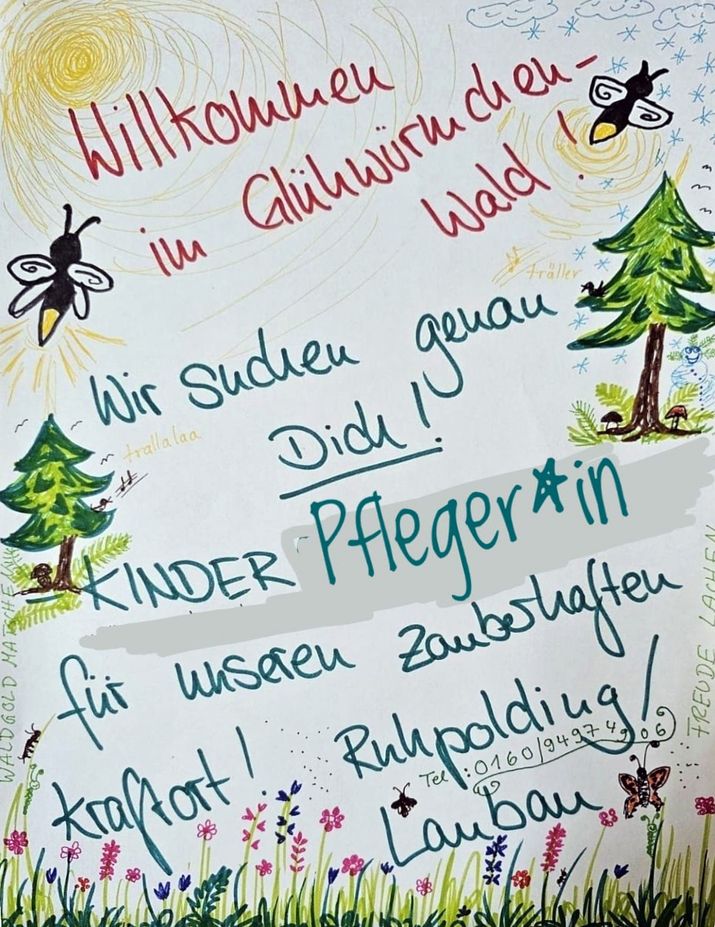 Willkommen
im Glühwürmchen-
Wald!
träller
Wir suchen genau
Dich!
trallalaa
-KINDER Pfleger*in
für unseren zauberhaften
Kraftort! Ruhpolding/
Tel.: 0160/9497 4906
Laubau
WALDGOLD MATSCHE
FREUDE LACHEN